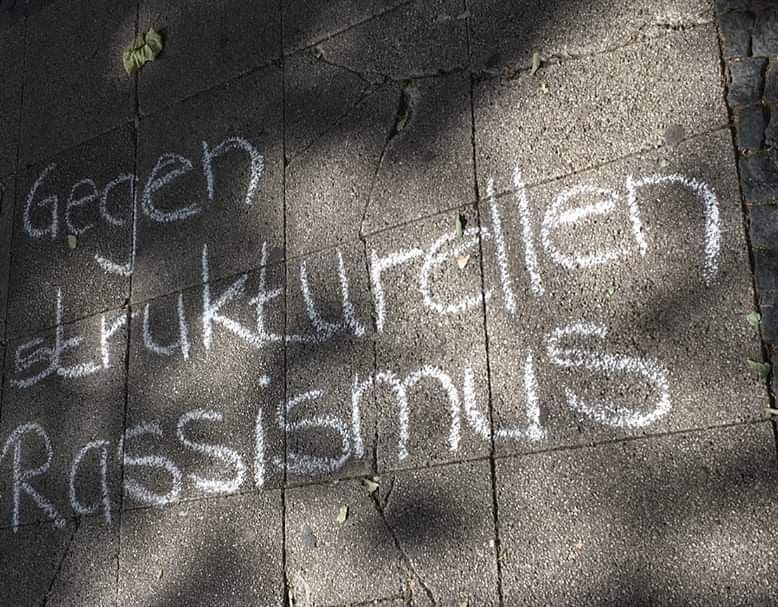 Gegen
strukturellen
Rassismus